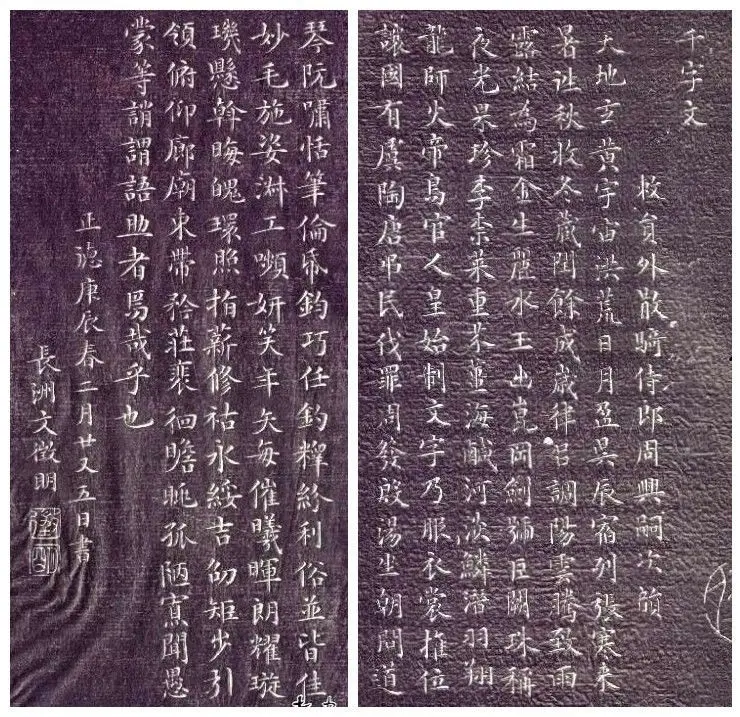 千字文
敕員外散騎侍郎周興嗣次韻
天地玄黃宇宙洪荒日月盈昃辰宿列張寒來
暑往秋收冬藏閏餘成歲律召調陽雲騰致雨
露結為霜金生麗水玉出崑岡劍號巨闕珠稱
夜光果珍李柰菜重芥薑海鹹河淡鱗潛羽翔
龍師火帝鳥官人皇始制文字乃服衣裳推位
讓國有虞陶唐弔民伐罪周發殷湯坐朝問道
琴阮嘯恬筆倫帋鈞巧任釣釋紛利俗並皆佳
妙毛施姿淑工嚬妍笑年矢每催曦暉朗耀璇
璣懸斡晦魄環照指薪修祜永綏吉劭矩步引
領俯仰廊廟束帶矜莊裵徊瞻眺孤陋寡聞愚
蒙等誚謂語助者焉哉乎也
正德庚辰春二月廿又五日書
長洲文徵明